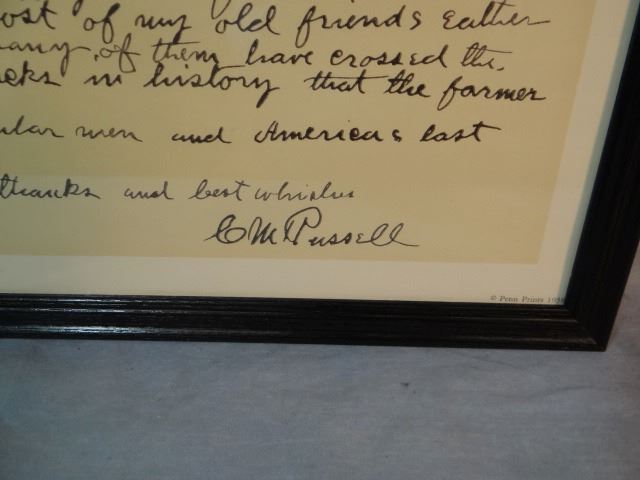 ost of my old friends eather
any of them have crossed the
cks in history that the farmer
ular men and Americas last
thanks and best whishes
C M Russell
© Penn Prints